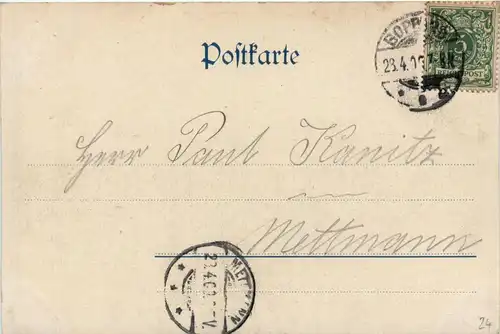 Postkarte
BOPPARD
23.4.
REICHSPOST
Herr Paul Kanitz
in
Mettmann
METTMANN
24